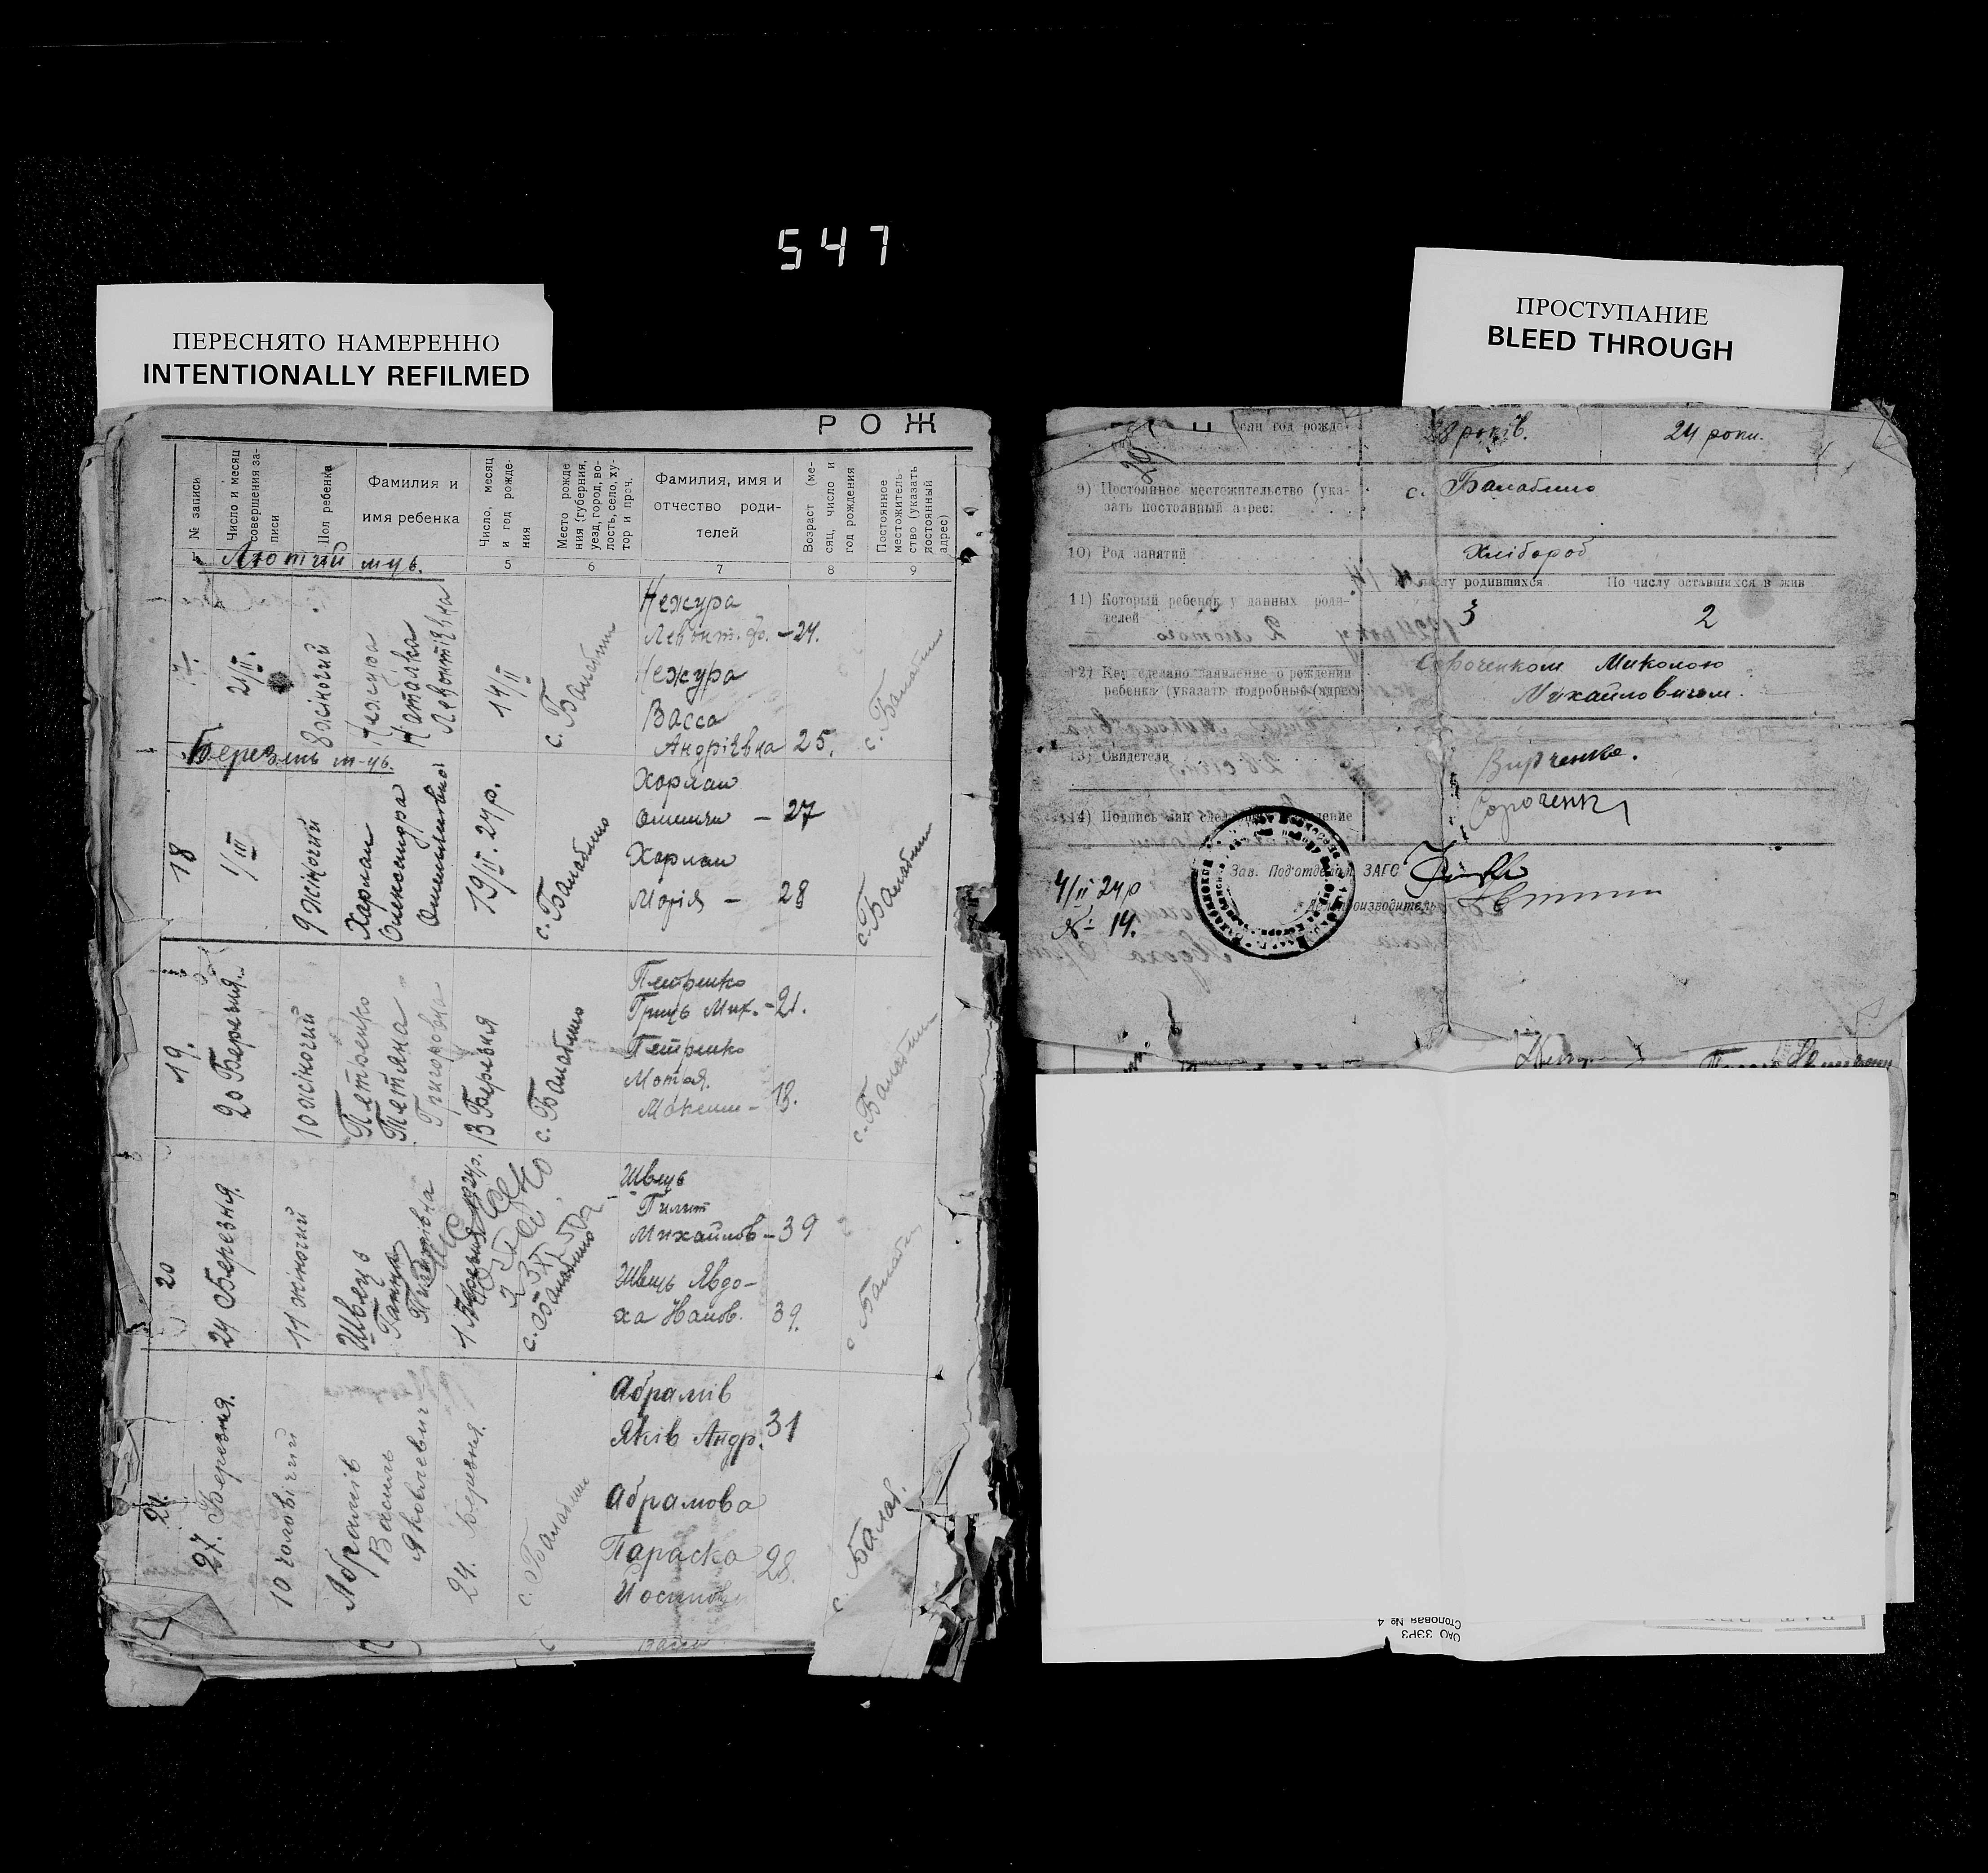 547
ПЕРЕСНЯТО НАМЕРЕННО
INTENTIONALLY REFILMED
ПРОСТУПАНИЕ
BLEED THROUGH
РОЖ
№ записи
Число и месяц
совершения за-
писи
Пол ребенка
Фамилия и
имя ребенка
Число, месяц
и год рожде-
ния
Место рожде
ния (губерния,
уезд, город, во-
лость, село, ху-
тор и проч.
Фамилия, имя и
отчество роди-
телей
Возраст (ме-
сяц, число и
год рождения
Постоянное
местожитель-
ство (указать
постоянный
адрес)
5
6
7
8
9
Лютий м-ць.
21/II
8 жіночий
Нежура
Наталка
Левонтіівна
14/II
с. Балабине
Нежура
24.
Нежура
Васса
Андріівна 25.
с. Балабине
Березень м-ць.
18
1/III
9 жіночий
Харлан
Олександра
19/II 24р.
с. Балабино
Харлан
27
Харлан
Марія - 28
с. Балабине
19.
20 Березня.
10 жіночий
Петренко
Тетяна
Григоровна
13 Березня
с. Балабино
Петренко
Гриць Мих. - 21.
Петренко
Мотря
с. Балабине
20
24 Березня.
11 жіночий
Швець
Ганна
Пилипівна
1 Березня 1924р.
с. Балабино
Швець
Пилип
Михайлов - 39
Швець Явдо-
ха Іванов. 39.
с. Балабине
21.
27. Березня.
10 чоловічий
Абрамів
Василь
Яковлевич
24. Березня.
с. Балабине
Абрамів
Яків Андр. 31
Абрамова
Параска 28.
Йосипов
с. Балаб.
сяц год рожде-
28 років.
24 роки.
9) Постоянное местожительство (ука-
зать постоянный адрес:
с. Балабино
10) Род занятий
Хлібороб
По числу родившихся
По числу оставшихся в жив
11) Который ребенок у данных роди-
телей
3
2
12) Кем сделано заявление о рождении
ребенка (указать подробный адрес)
Сороченком Миколою
Михайловичем.
13) Свидетели
Вирченко.
14) Подпись лиц сделавших заявление
Сороченко
Зав. Под'отделом ЗАГС
Делопроизводитель
4/II 24р
№ 14.
ОАО ЗЭРЗ
Столовая № 4